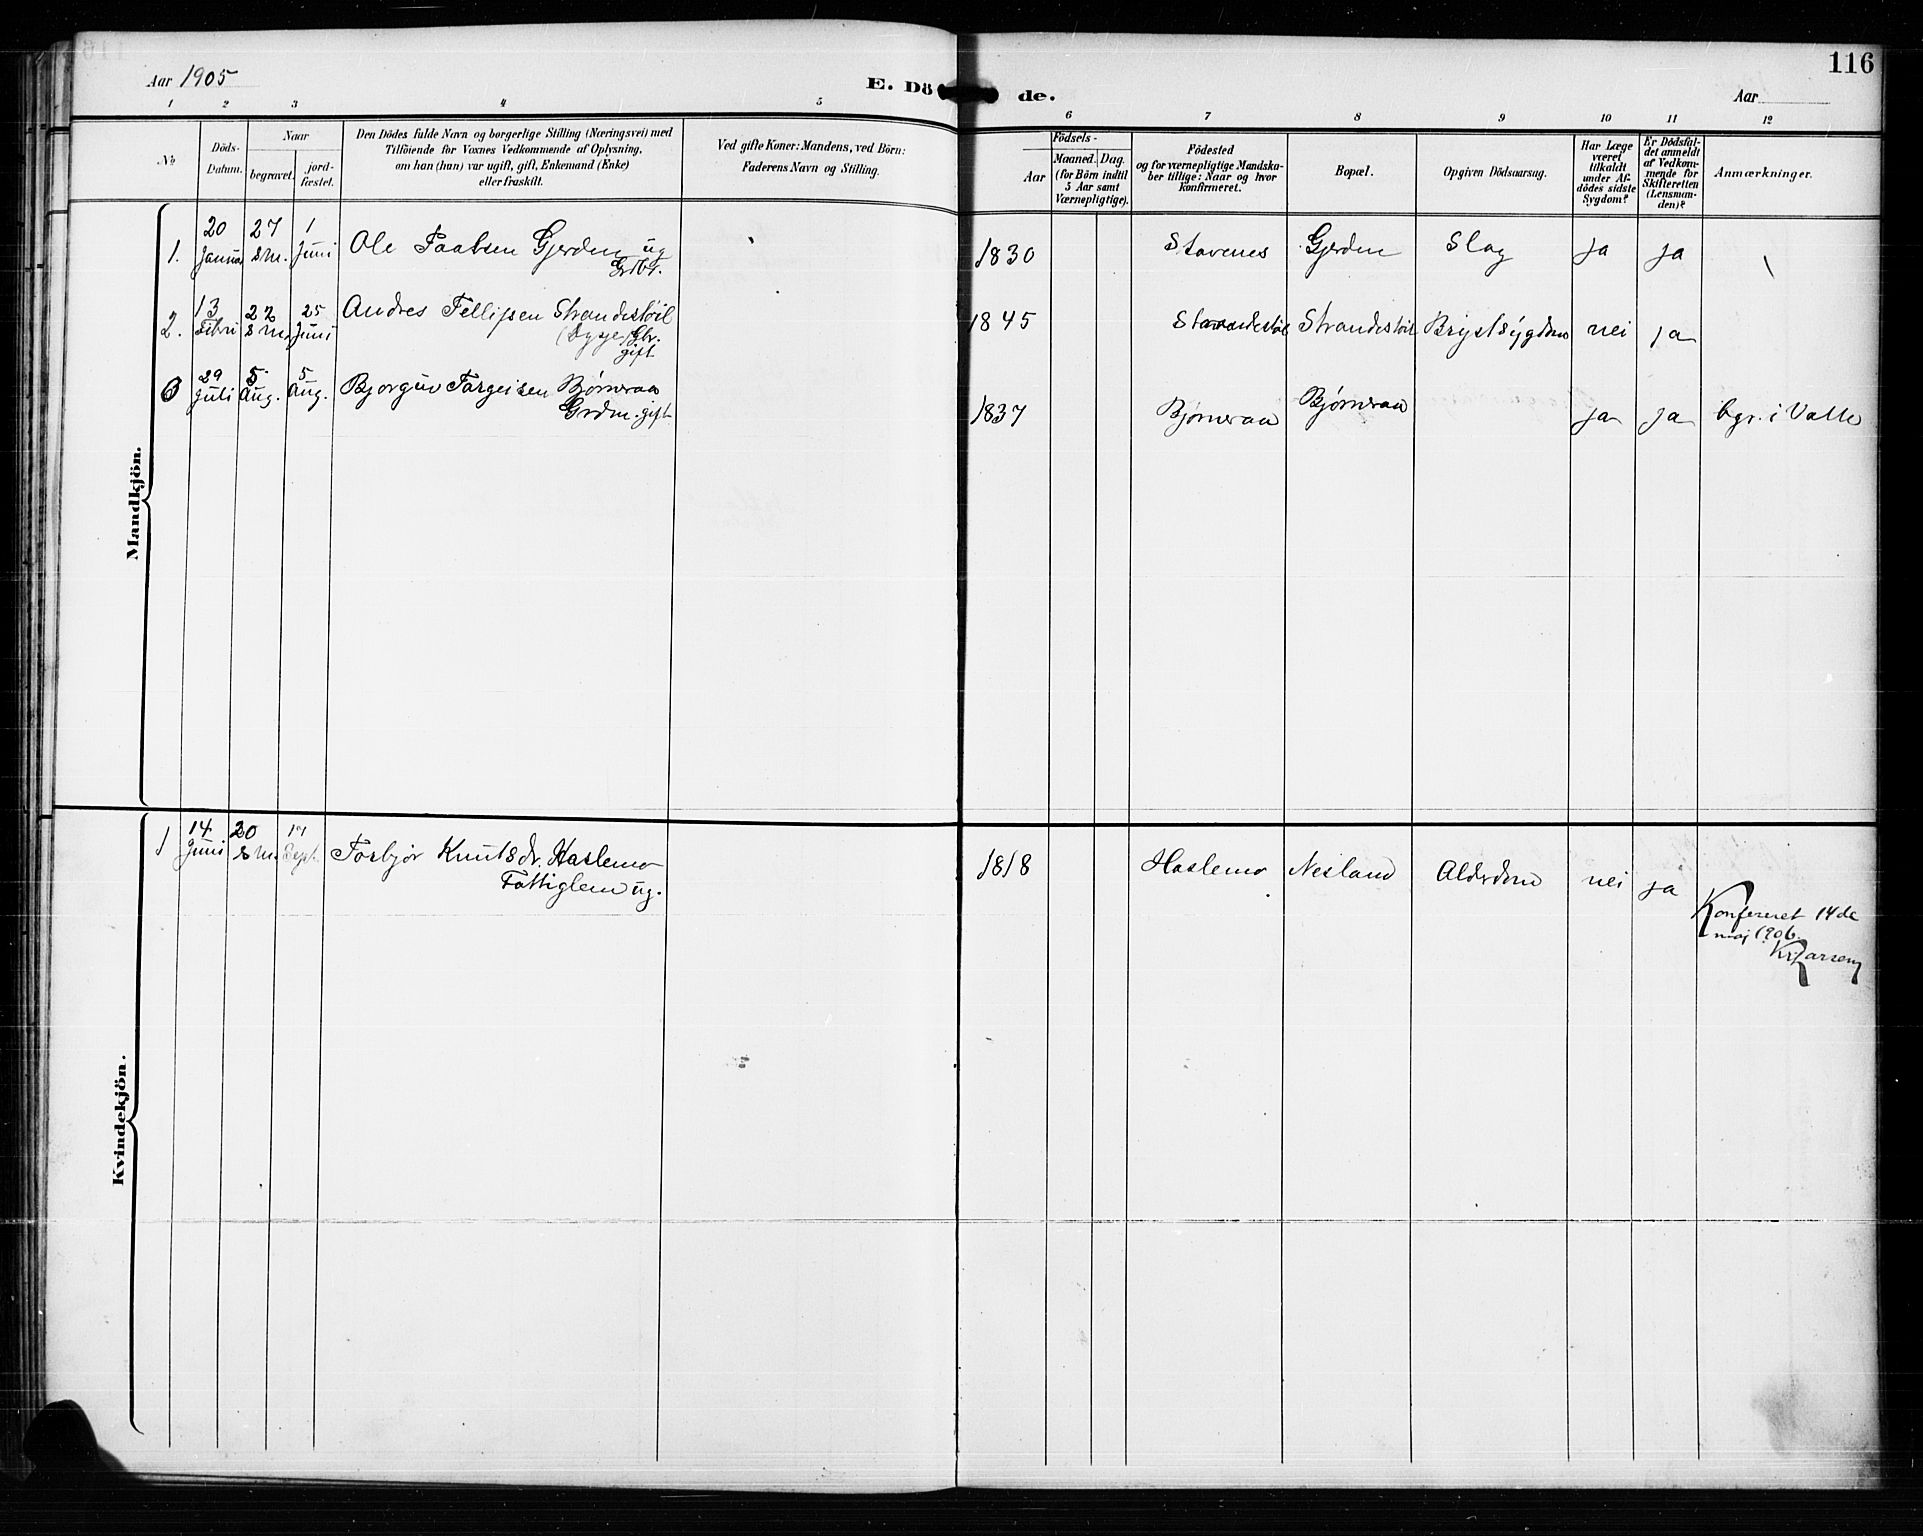 116
Aar 1905
E. Dö de.
Aar
1 2 3 4 5 6 7 8 9 10 11 12
No
Döds-
Datum.
Naar
begravet.
jord-
fæstet.
Den Dödes fulde Navn og borgerlige Stilling (Næringsvei) med
Tilföiende for Voxnes Vedkommende af Oplysning,
om han (hun) var ugift, gift, Enkemand (Enke)
eller fraskilt.
Ved gifte Koner: Mandens, ved Börn:
Faderens Navn og Stilling.
Födsels-
Aar
Maaned. Dag.
(for Börn indtil
5 Aar samt
Værnepligtige).
Födested
og for værnepligtige Mandska-
ber tillige: Naar og hvor
konfirmeret.
Bopæl.
Opgiven Dödsaarsag.
Har Læge
været
tilkaldt
under Af-
dödes sidste
Sygdom?
Er Dödsfal-
det anmeldt
af Vedkom-
mende for
Skifteretten
(Lensman-
den)?
Anmærkninger.
Mandkjön.
1. 20 Januar 27 s.m. 1 Juni Ole Paalsen Gjerden ug Grdbr. 1830 Stavenes Gjerden Slag ja ja
2. 13 Febri 22 s.m. 25 Juni Andres Fellipsen Strandestöil
gift 1845 Strandestöil Brystsygdom nei ja
29 Juli 5 Aug. 5 Aug. Bjorguv Torgeisen Bjørneraa
Grdm. gift 1837 Bjørneraa Bjørneraa ja ja bgr. i Valle
Kvindekjön.
1 14 Juni 20 s.m. Sept. Torbjør Knutsdr. Haslemo
Fattiglem ug. 1818 Haslemo Nesland Alderdom nei ja
Konfereret 14de
maj 1906.
Kr Larsen